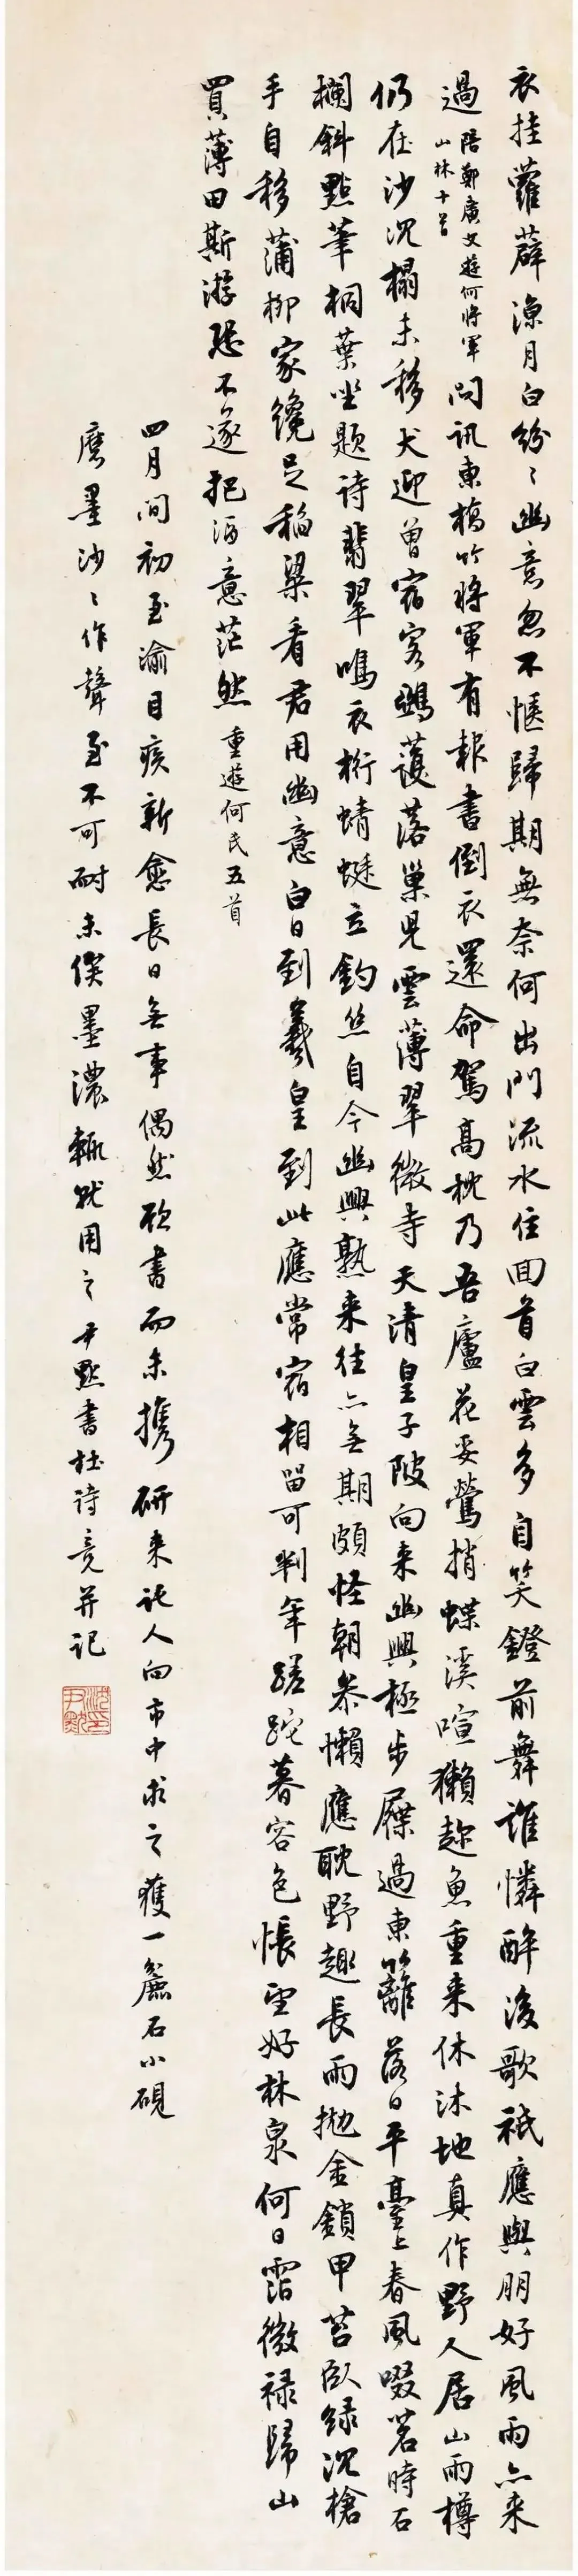 衣挂蘿薜凉月白紛〻幽意忽不愜歸期無奈何出門流水住回首白雲多自笑鐙前舞誰憐醉後歌祇應與朋好風雨亦来
過陪鄭廣文遊何將軍山林十首問訊東橋竹將軍有報書倒衣還命駕高枕乃吾廬花妥鶯捎蝶溪喧獺趂魚重来休沐地真作野人居山雨樽
仍在沙沉榻未移犬迎曾宿客鴉護落巢兒雲薄翠微寺天清皇子陂向来幽興極步屧過東籬落日平臺上春風啜茗時石
欄斜點筆桐葉坐題詩翡翠鳴衣桁蜻蜓立釣絲自今幽興熟来往亦無期頗怪朝參懶應耽野趣長雨拋金鎖甲苔臥緑沉槍
手自移蒲柳家纔足稻粱看君用幽意白日到羲皇到此應常宿相留可判年蹉跎暮容色悵望好林泉何日霑微禄歸山
買薄田斯游恐不遂把酒意茫然重遊何氏五首
四月間初至渝目疾新愈長日無事偶然欲書而未攜研来託人向市中求之獲一麄石小硯
磨墨沙〻作聲至不可耐未俟墨濃輒就用之尹默書杜詩竟并記
沈尹默印